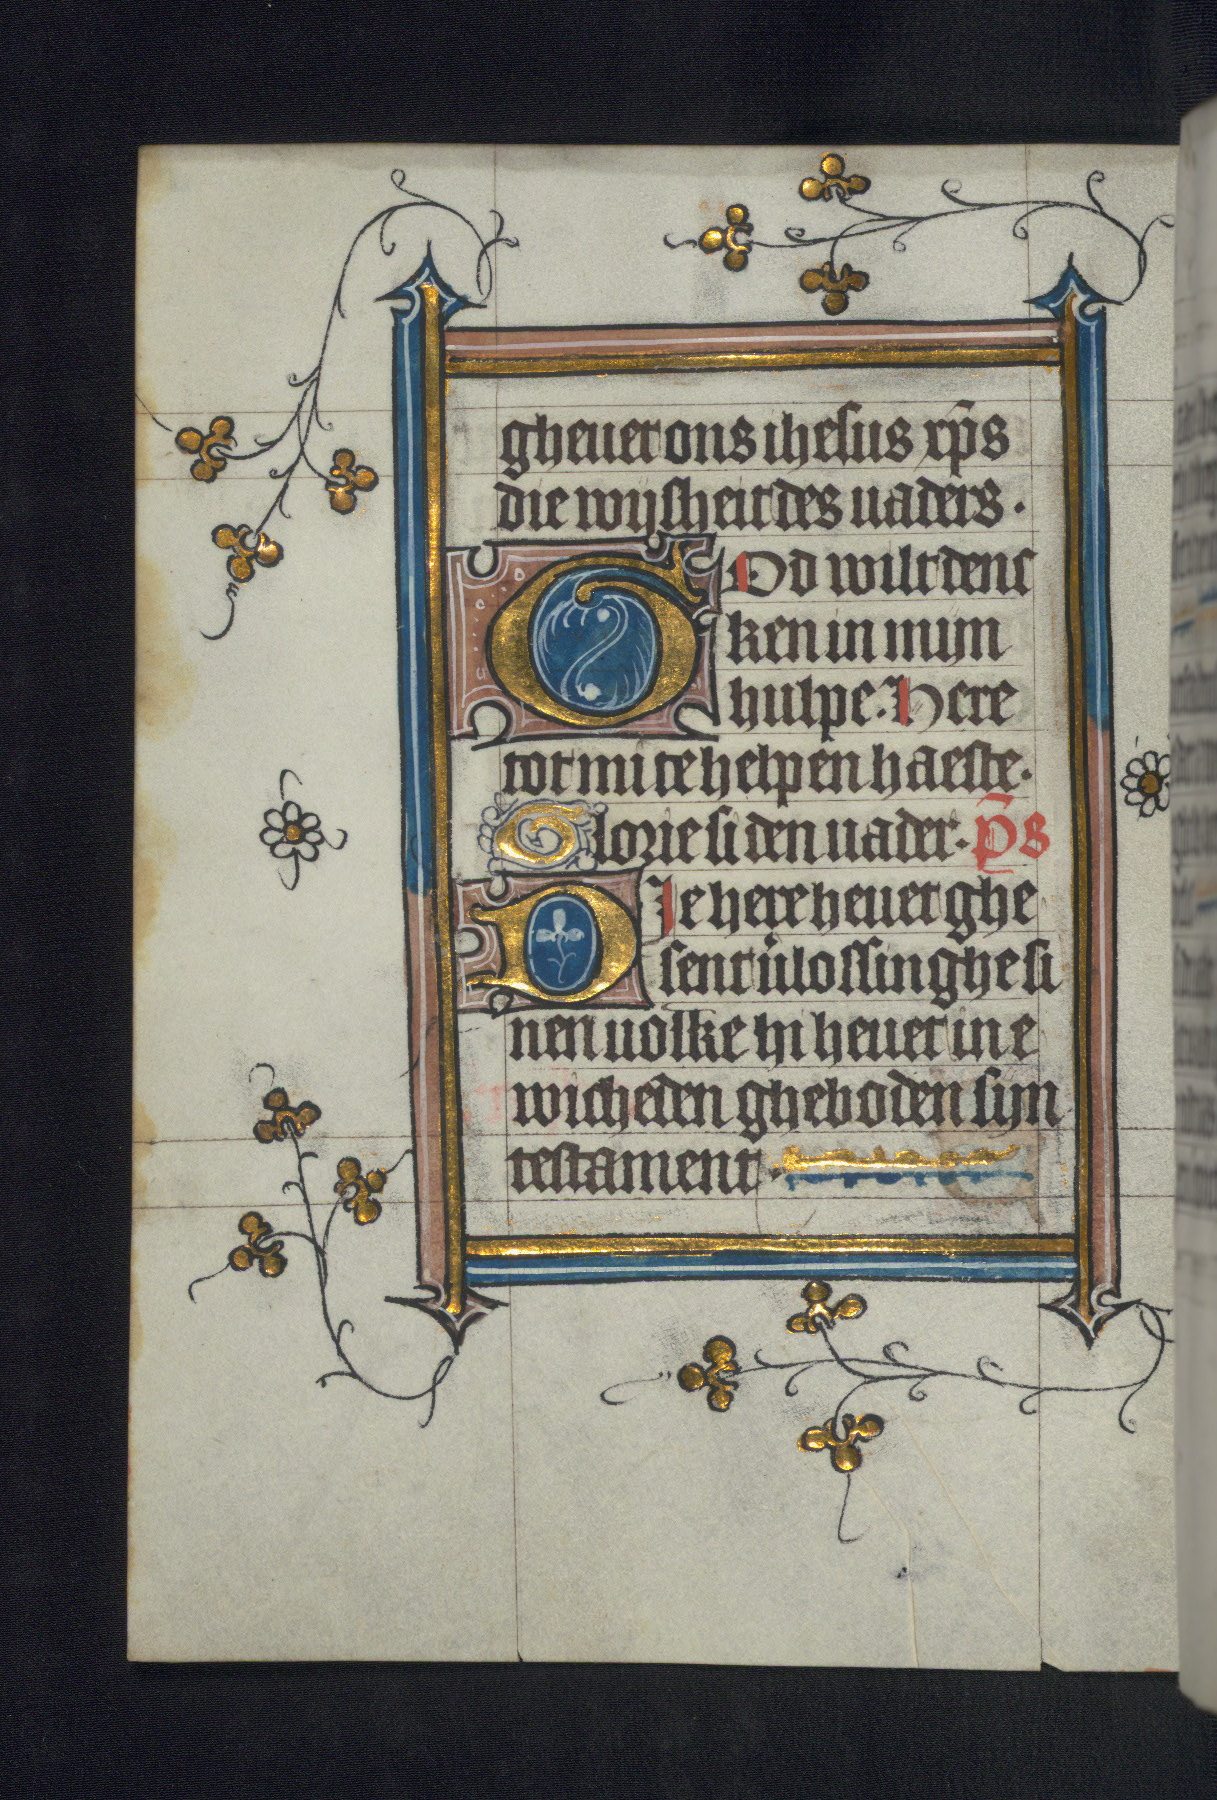 gheuet ons ihesus xp̄s
die wijsheit des uaders ·
GOd wilt denc
ken in mijn
hulpe · Here
tot mi te helpen haeste ·
Glorie si den uader · p̄s
DIe here heuet ghe
sent ūlossinghe si
nen uolke hi heuet in e
wicheden gheboden sijn
testament ·